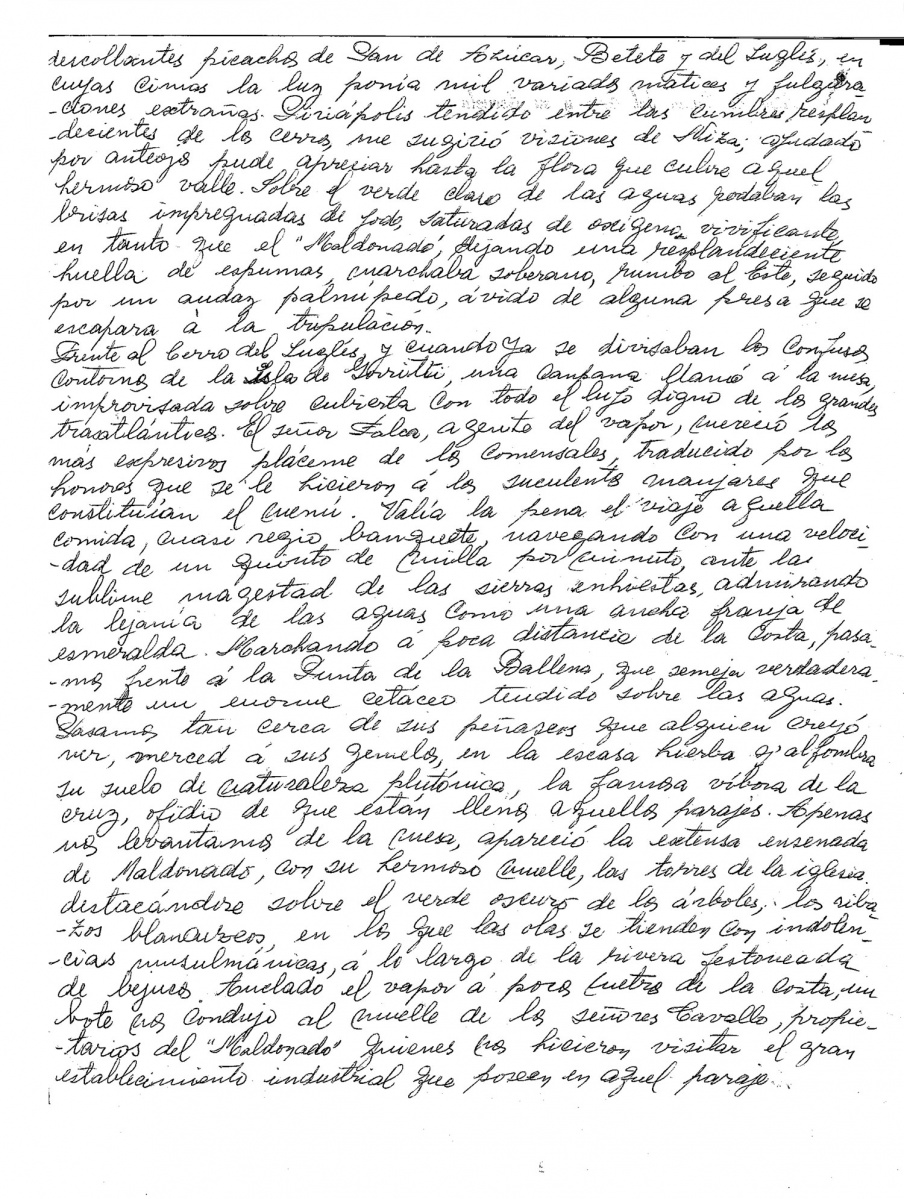 descollantes picachos de Pan de Azúcar, Betete y del Inglés, en
cuyas cimas la luz ponía mil variados matices y fulgura-
-ciones extrañas. Piriápolis tendido entre las cumbres resplan
-decientes de los cerros, me sugirió visiones de Niza; ayudado
por anteojos pude apreciar hasta la flora que cubre aquel
hermoso valle. Sobre el verde claro de las aguas rodaban las
brisas impregnadas de yodo, saturadas de oxígeno vivificante,
en tanto que el "Maldonado", dejando una resplandeciente
huella de espumas, marchaba soberano, rumbo al Este, seguido
por un audaz palmípedo, ávido de alguna presa que se
escapara à la tripulación.
Frente al Cerro del Inglés, y cuando ya se divisaban los confusos
contornos de la Isla de Gorritti, una campana llamó á la mesa,
improvisada sobre cubierta con todo el lujo digno de los grandes
trasatlánticos. El señor Falco, agente del vapor, mereció los
más expresivos plácemes de los comensales, traducido por los
honores que se le hicieron á los suculentos manjares que
constituían el menú. Valía la pena el viaje aquella
comida, cuasi regio banquete, navegando con una veloci-
-dad de un quinto de milla por minuto, ante la
sublime magestad de las sierras enhiestas, admirando
la lejanía de las aguas como una ancha franja de
esmeralda. Marchando á poca distancia de la costa, pasa-
-mos frente á la Punta de la Ballena, que semeja verdadera-
-mente un enorme cetáceo tendido sobre las aguas.
Pasamos tan cerca de sus peñascos que alguien creyó
ver, merced á sus gemelos, en la escasa hierba q' alfombra
su suelo de naturaleza plutónica, la famosa víbora de la
cruz, ofidio de que están llenos aquellos parajes. Apenas
nos levantamos de la mesa, apareció la extensa ensenada
de Maldonado, con su hermoso muelle, las torres de la iglesia
destacándose sobre el verde oscuro de los árboles, los riba-
-zos blancuzcos, en los que las olas se tienden con indolen-
-cias musulmánicas, á lo largo de la rivera festoneada
de bejucos. Anclado el vapor á pocos metros de la costa, un
bote nos condujo al muelle de los señores Cavallo, propie-
-tarios del "Maldonado" quienes nos hicieron visitar el gran
establecimiento industrial que poseen en aquel paraje...